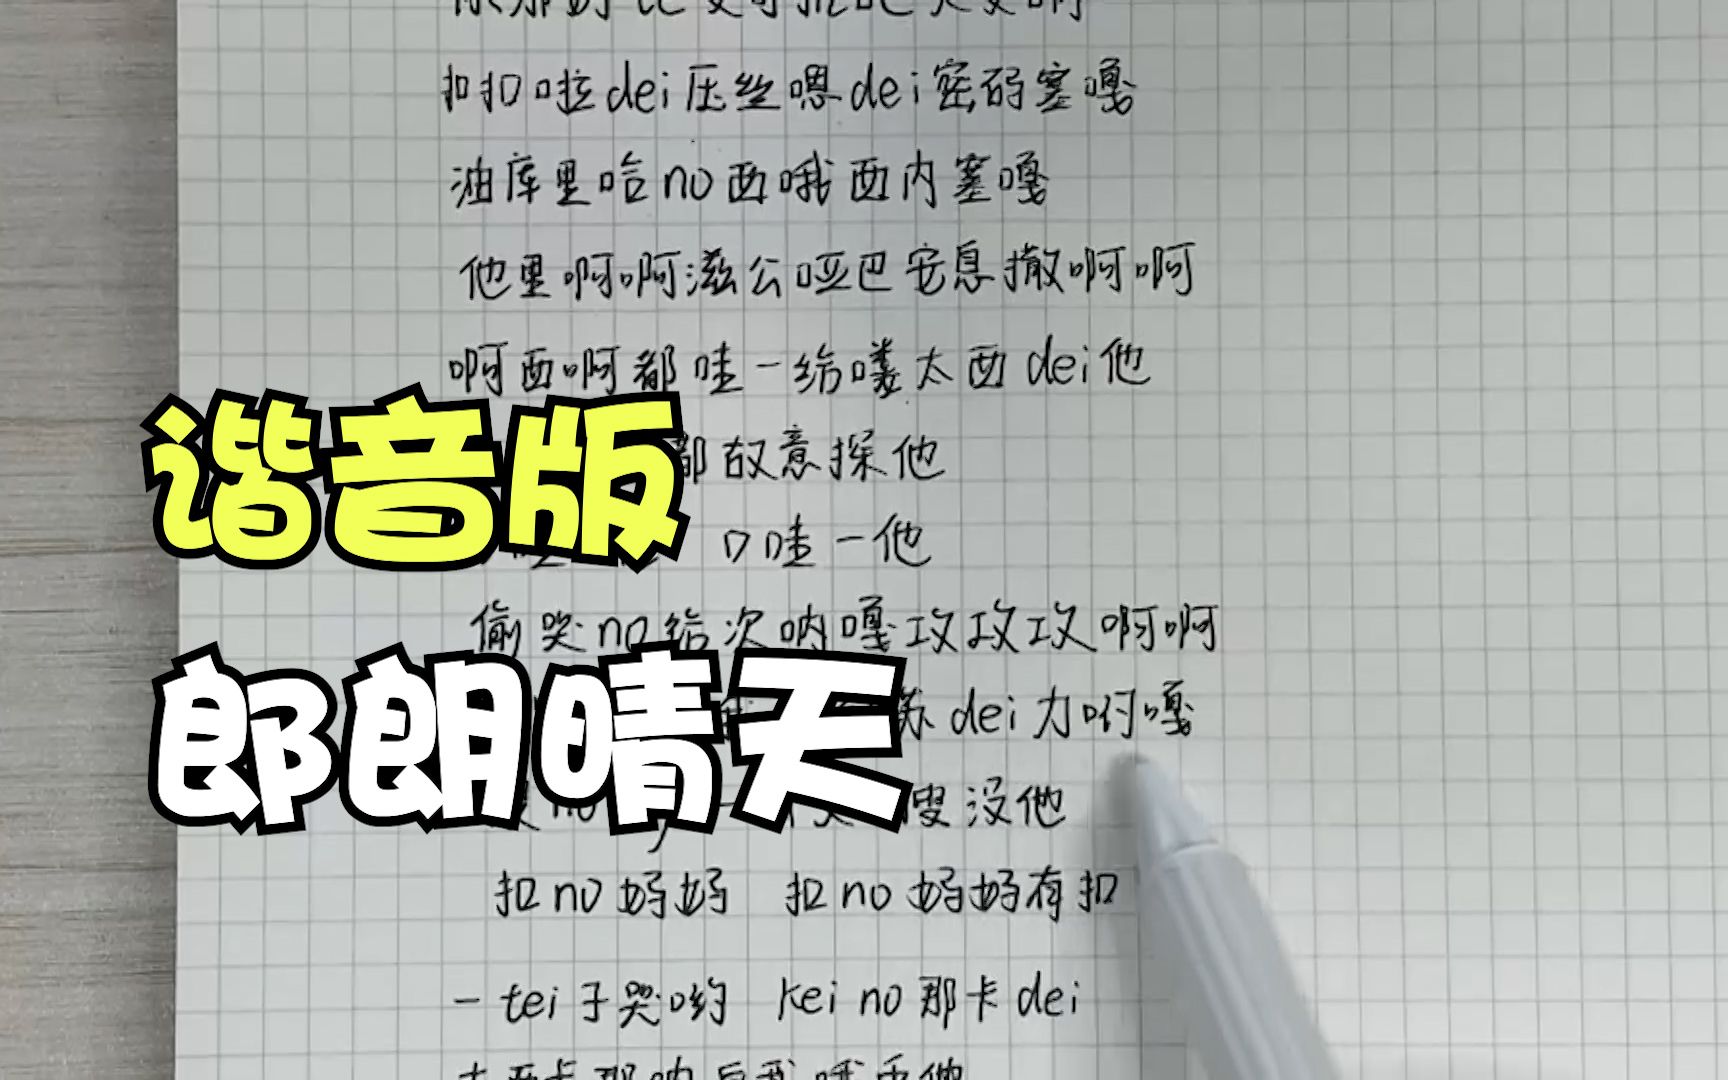 扣扣啦dei压丝嗯dei密码塞嘎
油库里哈no西哦西内塞嘎
他里啊啊滋公哑巴安息撒啊啊
啊西啊都哇一给喽太西dei他
都故意探他
口哇一他
偷哭no给次呐嘎攻攻攻啊啊
谐音版
dei力咐嘎
郎朗晴天
搜没他
扣no妈妈 扣no妈妈有扣
一tei子哭哟 kei no那卡dei